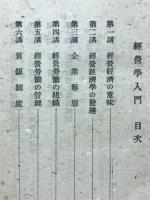 經營學入門 目次
第一講 經營經濟の意味
第二講 經營經濟學の發達
第三講 企業形態
第四講 經營勞働の組織
第五講 經營勞働の管理
第六講 賃銀制度